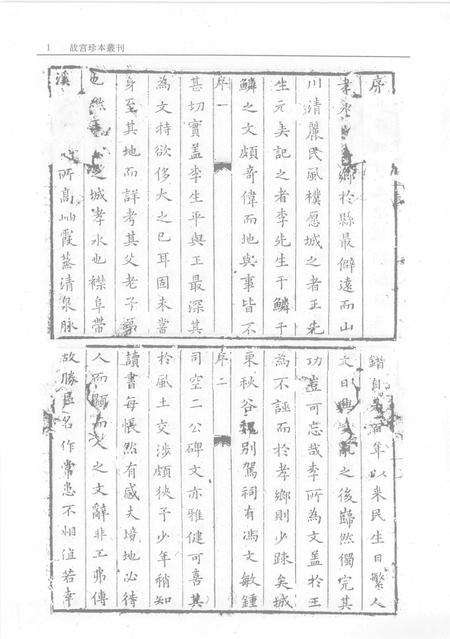 1 故宮珍本叢刊
序
鄉於縣最僻遠而山
川靖麗民風樸愿城之者王先
生元美記之者李先生于鱗于
鱗之文頗奇偉而地與事皆不
序一
甚切實蓋李生平與王最深其
為文特欲侈大之已耳固未嘗
身至其地而詳考其父老子
也然之城孝水也襟阜帶
溪所霞蒸清泉脉
錯自百年以来民生日繁人
文日亂之後巋然獨完其
功豈可忘哉李所為文蓋於王
為不誣而於孝鄉則少踈矣城
東秋谷別駕祠有馮文敏鍾
序二
司空二公碑文亦雅健可喜其
於風土交涉頗狹予少年稍知
讀書每悵然有感夫培地必待
人而顯而人之文辭非王弗傳
故勝區名作常患不相值若幸